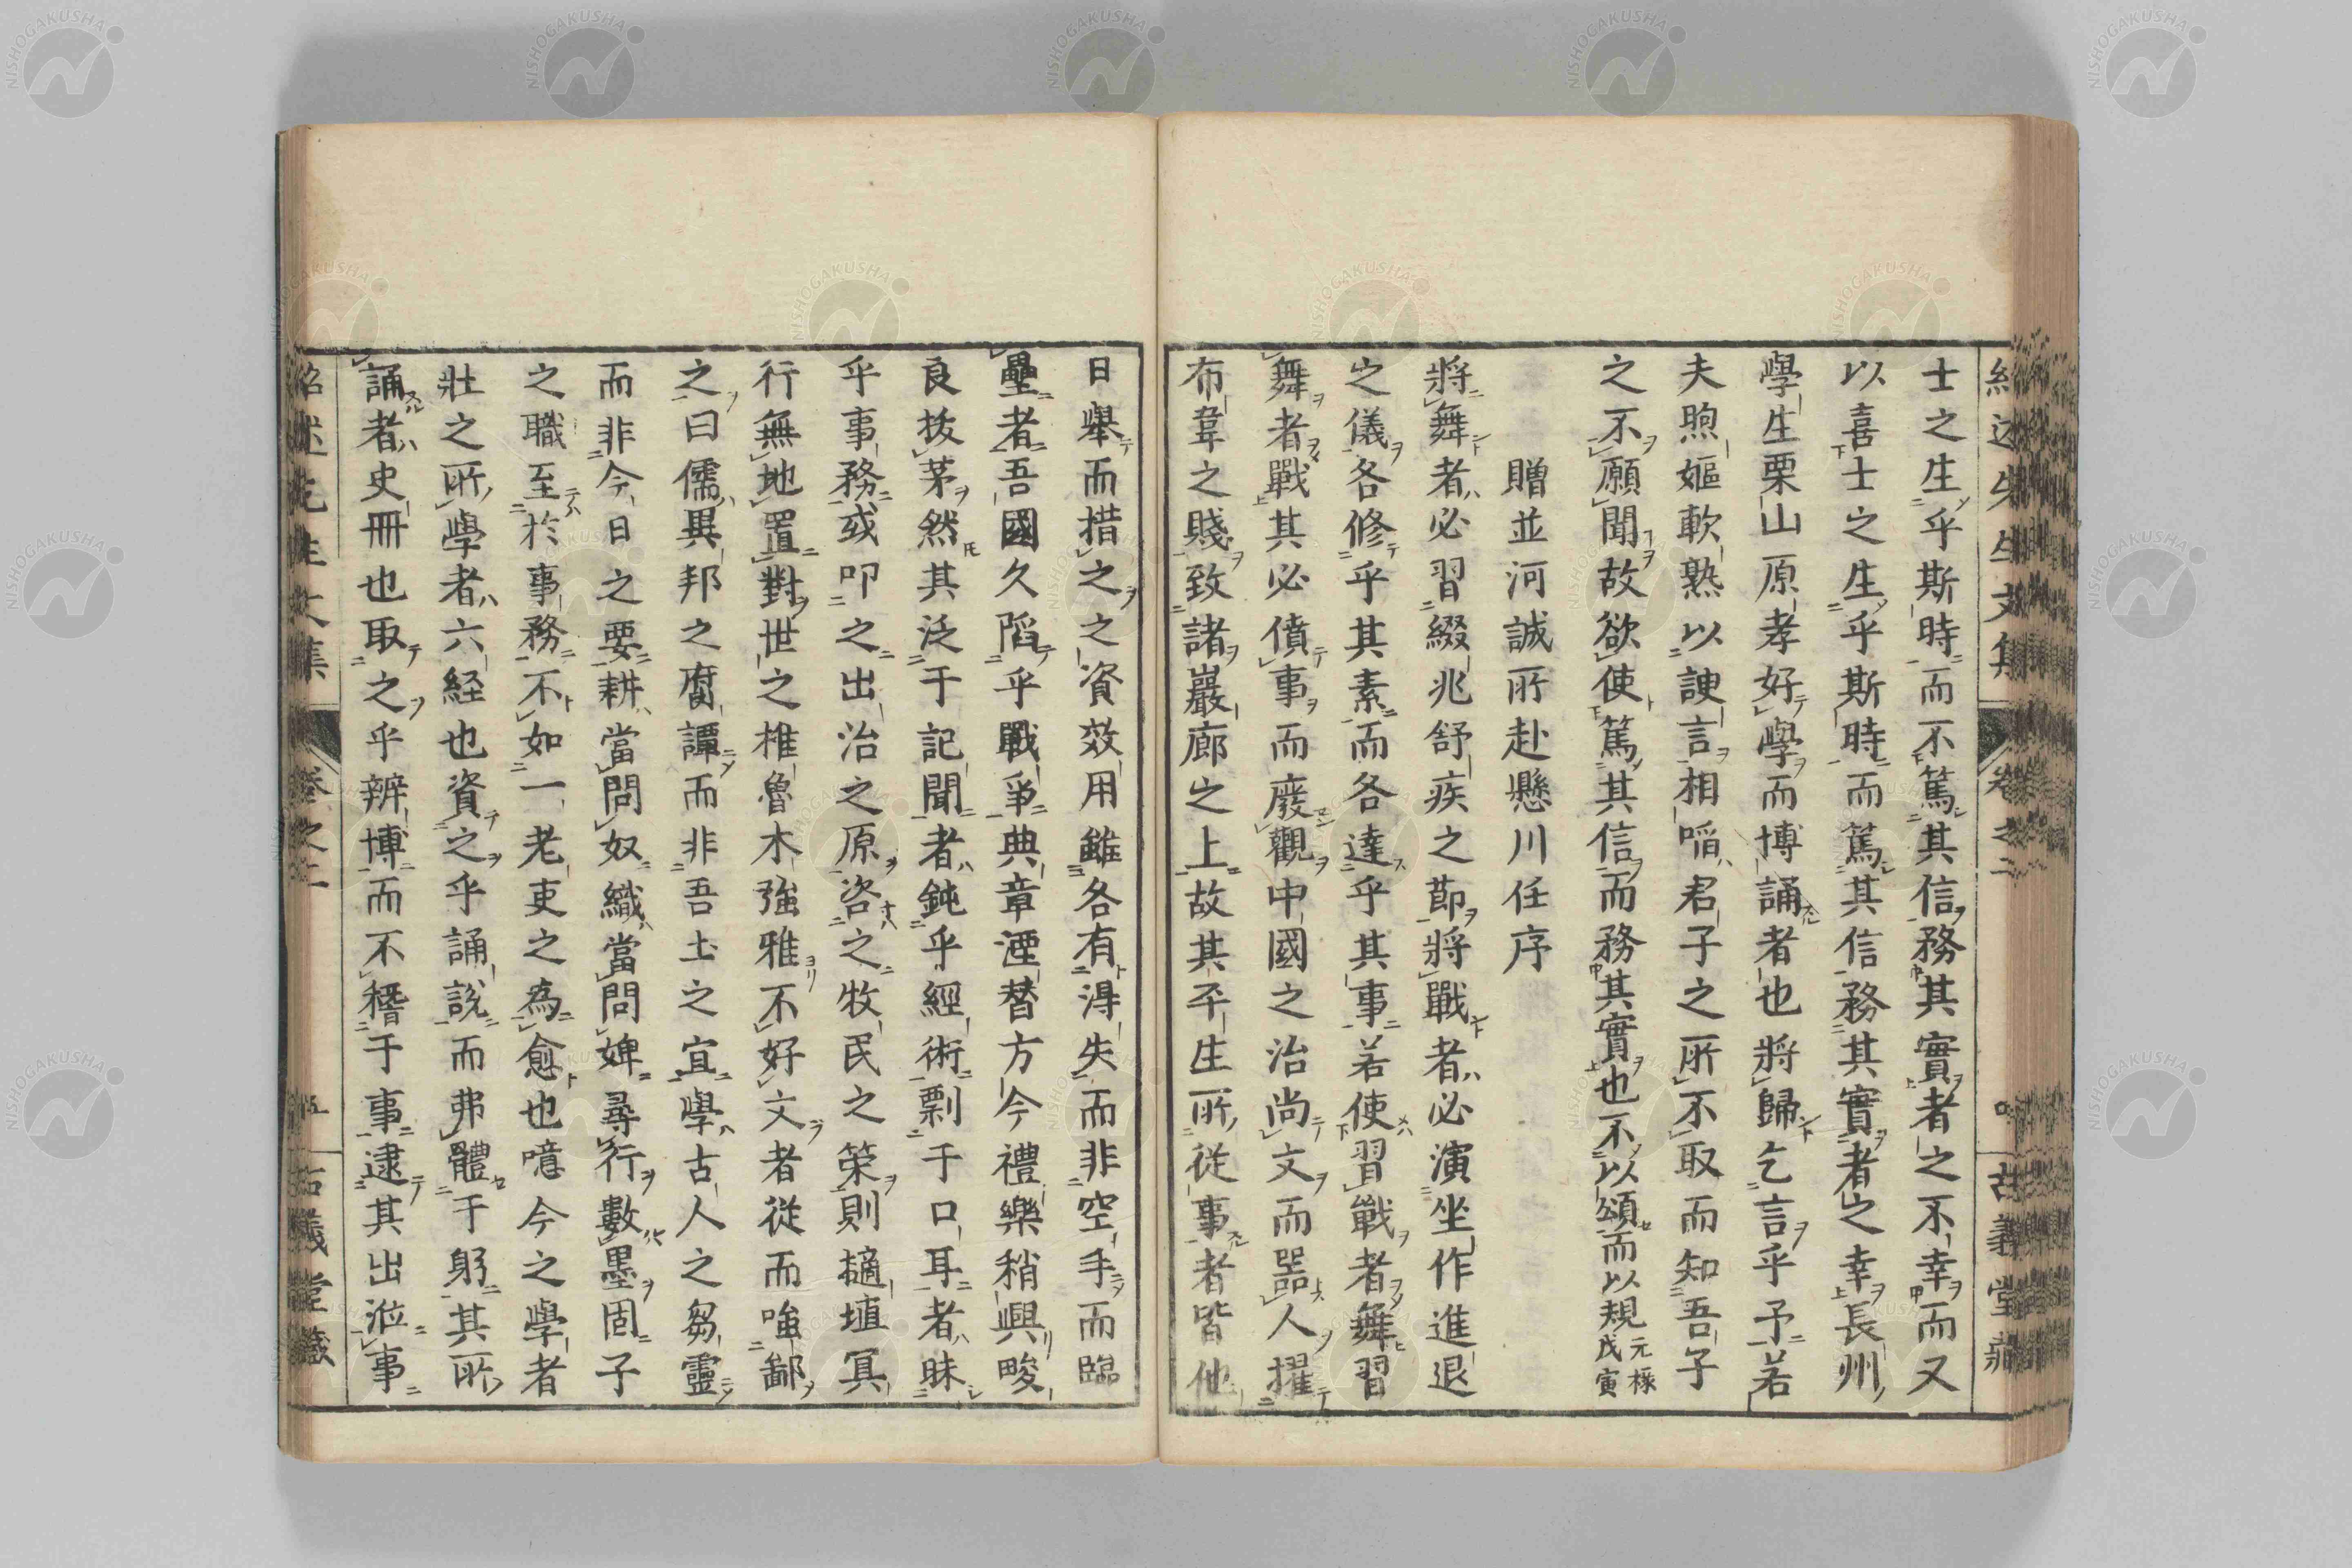 士之生乎斯時而不篤其信務其實者之不幸而又
以喜士之生乎斯時而篤其信務其實者之幸長州
學生栗山原孝好學而博誦者也將歸乞言乎予若
夫煦嫗軟熟以諛言相啗君子之所不取而知吾子
之不願聞故欲使篤其信而務其實也不以頌而以規元祿戊寅
贈並河誠所赴懸川任序
將舞者必習綴兆舒疾之節將戰者必演坐作進退
之儀各修乎其素而各達乎其事若使習戰者舞習
舞者戰其必僨事而廢觀中國之治尚文而器人擢
布韋之賤致諸巖廊之上故其平生所從事者皆他
日舉而措之之資效用雖各有得失而非空手而臨
壘者吾國久陷乎戰爭典章湮替方今禮樂稍興畯
良拔茅然其泛于記聞者鈍乎經術剽于口耳者昧
乎事務或叩之出治之原咨之牧民之策則擿埴冥
行無地置對世之椎魯木強雅不好文者從而嗤鄙
之曰儒異邦之腐譚而非吾土之宜學古人之芻靈
而非今日之要耕當問奴織當問婢尋行數墨固子
之職至於事務不如一老吏之為愈也噫今之學者
壯之所學者六経也資之乎誦說而弗體于躬其所
誦者史冊也取之乎辨博而不稽于事逮其出涖事
紹述先生文集 卷之二 五 古義堂藏
NISHOGAKUSHA